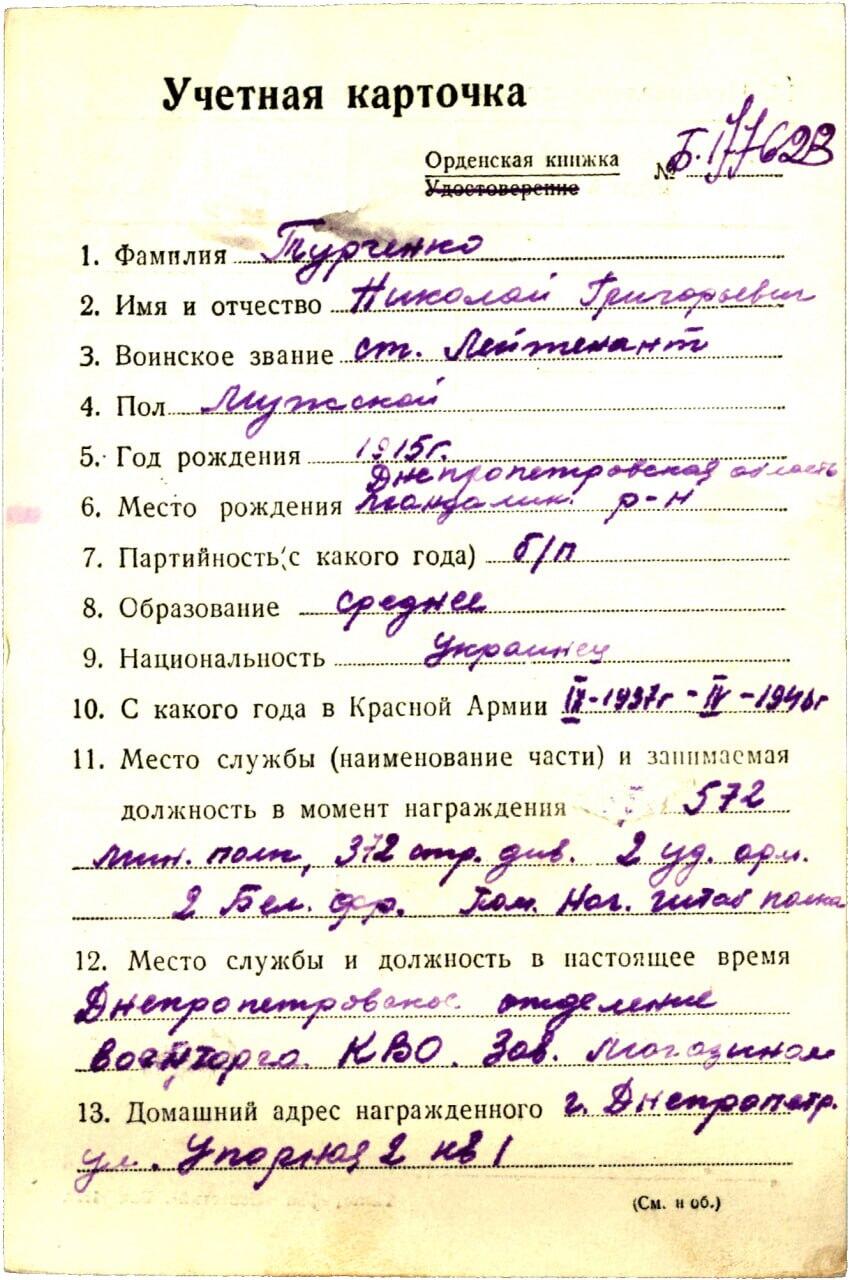 Учетная карточка
Орденская книжка
Удостоверение
№ Б. 177623
1. Фамилия Турченко
2. Имя и отчество Николай Григорьевич
3. Воинское звание ст. Лейтенант
4. Пол Мужской
5. Год рождения 1915г.
Днепропетровская область
6. Место рождения р-н
7. Партийность (с какого года) б/п
8. Образование среднее
9. Национальность Украинец
10. С какого года в Красной Армии IX-1937г - IV-1946г
11. Место службы (наименование части) и занимаемая
должность в момент награждения 572
мин. полк, 372 стр. див. 2 уд. арм.
2 Бел. фр. Пом. Нач. штаб полка
12. Место службы и должность в настоящее время
Днепропетровское отделение
Военторга КВО. Зав. Магазином
13. Домашний адрес награжденного г. Днепропетр.
ул. Упорная 2 кв 1
(См. н об.)